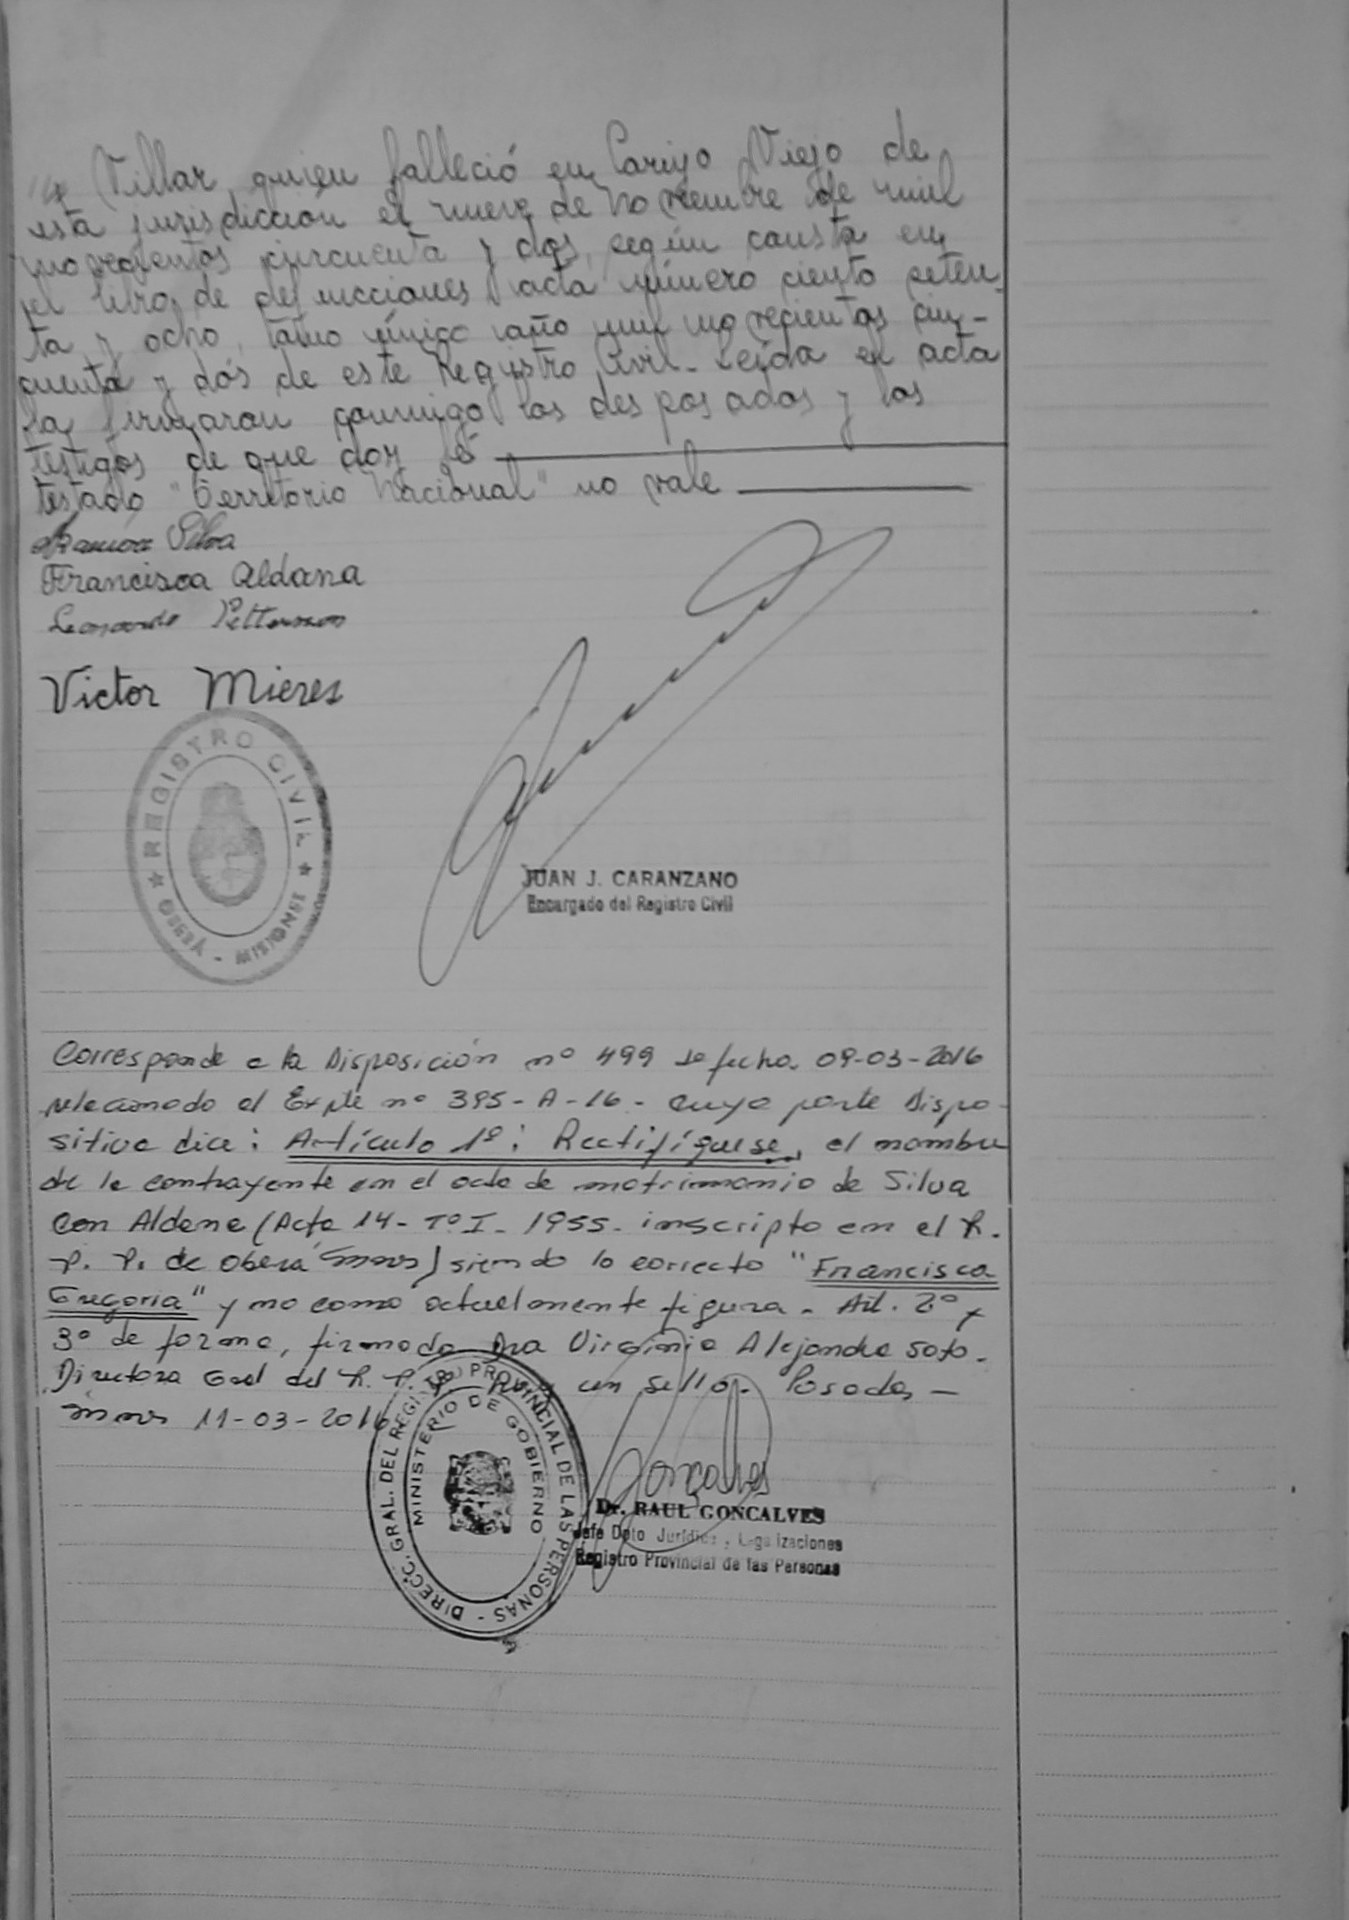 Villar, quien falleció en Cariyo Viejo de
esta jurisdicción el nueve de noviembre de mil
novecientos cincuenta y dos, según consta en
el libro de defunciones acta número ciento seten-
ta y ocho, tomo único año mil novecientos cin-
cuenta y dós de este Registro Civil. Leída el acta
la firmaron conmigo los desposados y los
testigos de que doy fé
testado "Territorio Nacional" no vale
Ramón Silva
Francisca Aldana
Leonardo
Victor Mieres
REGISTRO CIVIL
OBERÁ - MISIONES
JUAN J. CARANZANO
Encargado del Registro Civil
Corresponde a la Disposición nº 499 de fecha 09-03-2016
relacionado al Expte nº 395-A-16- cuya parte Dispo-
sitiva dice: Artículo 1º: Rectifíquese, el nombre
de la contrayente en el acta de matrimonio de Silva
con Aldana (Acta 14- Tº I- 1955- inscripto en el R.
P. P. de Oberá Mnes) siendo lo correcto "Francisca
Gregoria" y no como actualmente figura. Art. 2º y
3º de forma, firmado Dra Virginia Alejandra Soto.
Directora Gral del R. P. P. Hay un sello. Posadas -
Mnes 11-03-2016
DIRECC. GRAL. DEL REGISTRO PROVINCIAL DE LAS PERSONAS -
MINISTERIO DE GOBIERNO
Goncalves
Dr. RAUL GONCALVES
Jefe Dpto Jurídico y Legalizaciones
Registro Provincial de las Personas